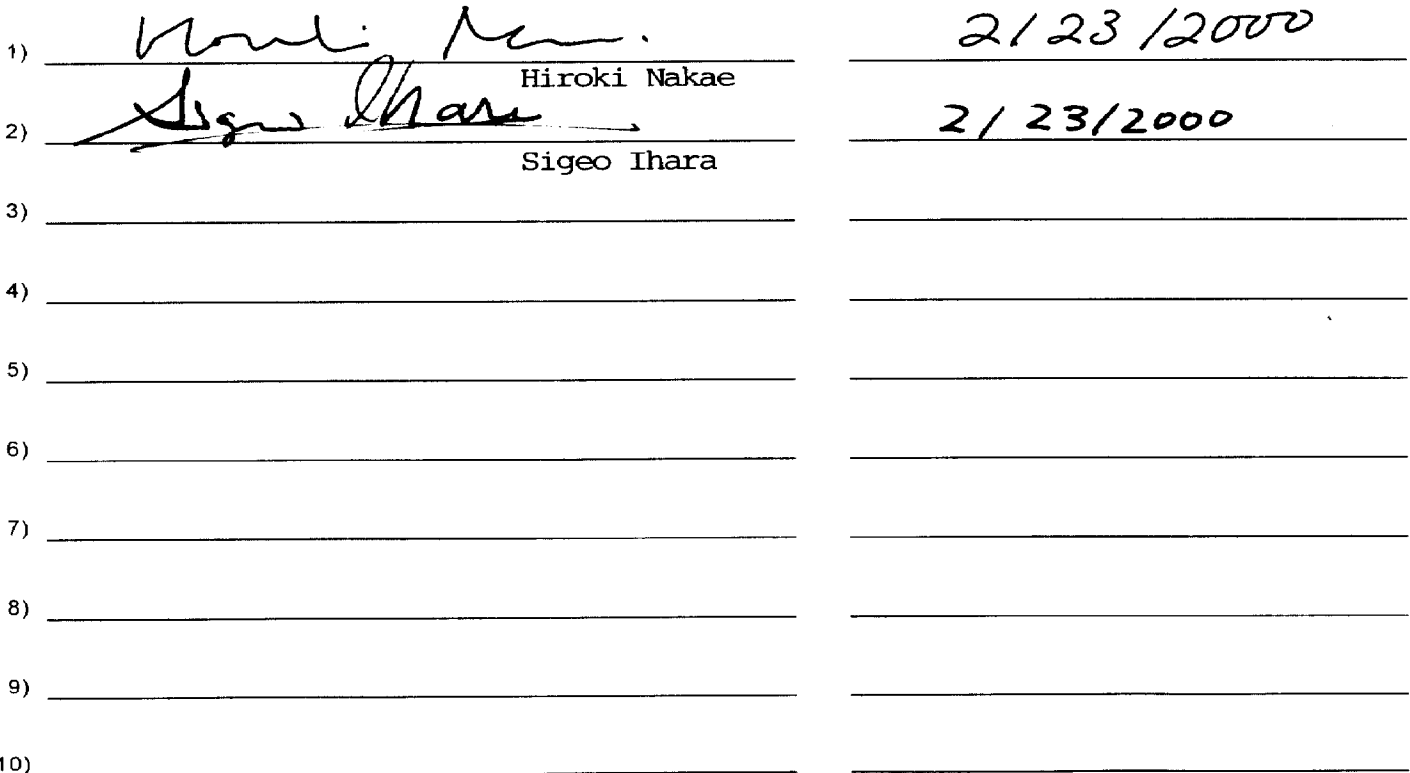 1) 2/23/2000
Hiroki Nakae
2) Sigeo Ihara 2/23/2000
Sigeo Ihara
3)
4)
5)
6)
7)
8)
9)
10)